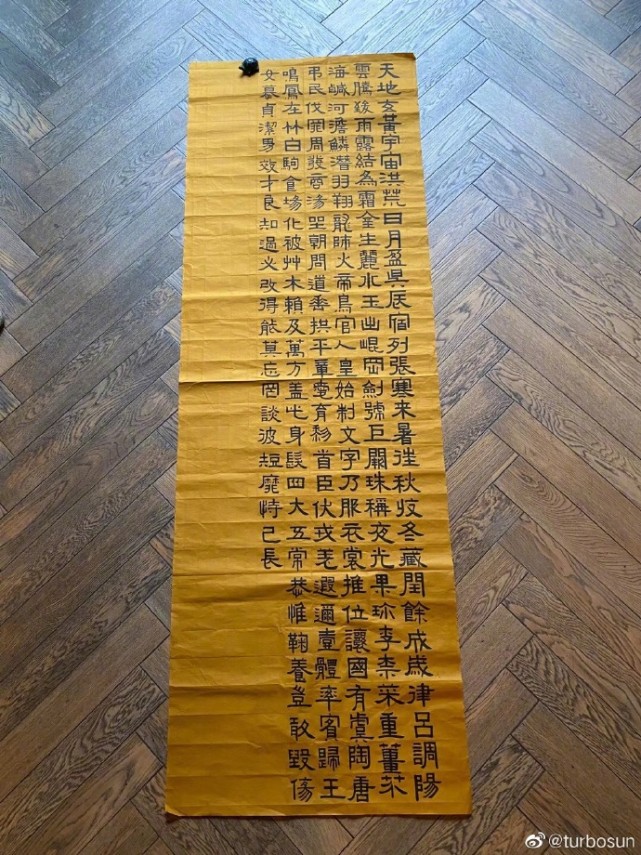 天地玄黃宇宙洪荒日月盈昃辰宿列張寒來暑往秋收冬藏閏餘成歲律呂調陽
雲騰致雨露結為霜金生麗水玉出崐岡劍號巨闕珠稱夜光果珍李柰菜重薑芥
海鹹河澹鱗潛羽翔龍師火帝鳥官人皇始制文字乃服衣裳推位讓國有虞陶唐
弔民伐罪周發商湯坐朝問道垂拱平章愛育黎首臣伏戎羌遐邇壹體率賓歸王
鳴鳳在竹白駒食場化被艸木賴及萬方蓋此身髮四大五常恭惟鞠養豈敢毀傷
女慕貞潔男效才良知過必改得能莫忘罔談彼短靡恃己長
@turbosun